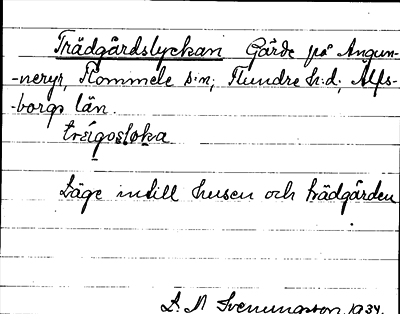 Trädgårdslyckan Gärde på Angun-
-neryr, Flommele s:n; Flundre h:d; Älfs-
-borgs län.
trégosloka
Läge intill husen och trädgården
D. A. Svenungsson, 1934.